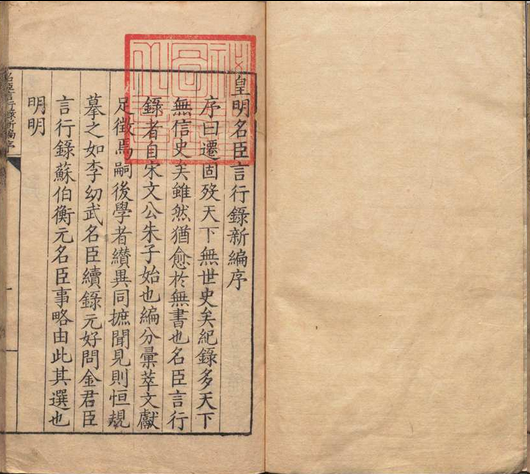 皇明名臣言行錄新編序
序曰遷固歿天下無世史矣紀錄多天下
無信史矣雖然猶愈於無書也名臣言行
錄者自宋文公朱子始也編分彙萃文獻
足徵焉嗣後學者纘異同摭聞見則恒規
摹之如李幼武名臣續錄元好問金君臣
言行錄蘇伯衡元名臣事略由此其選也
明明